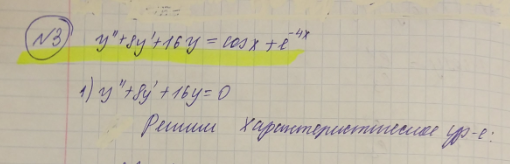 №3 y''+8y'+16y=cosx+e^{-4x}
1) y''+8y'+16y=0
Решим характеристическое ур-е: